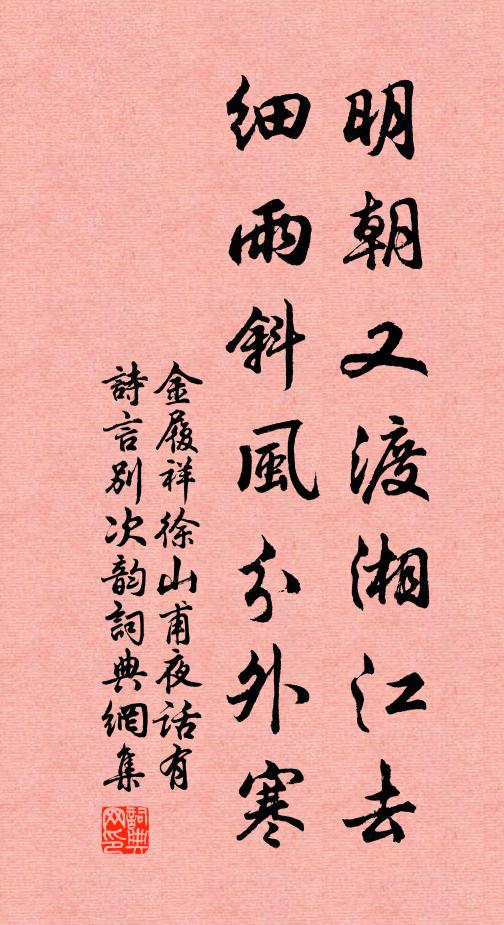 明朝又渡湘江去
細雨斜風分外寒
金履祥徐山甫夜话有
詩言别次韵詞典網集
詞典
网印